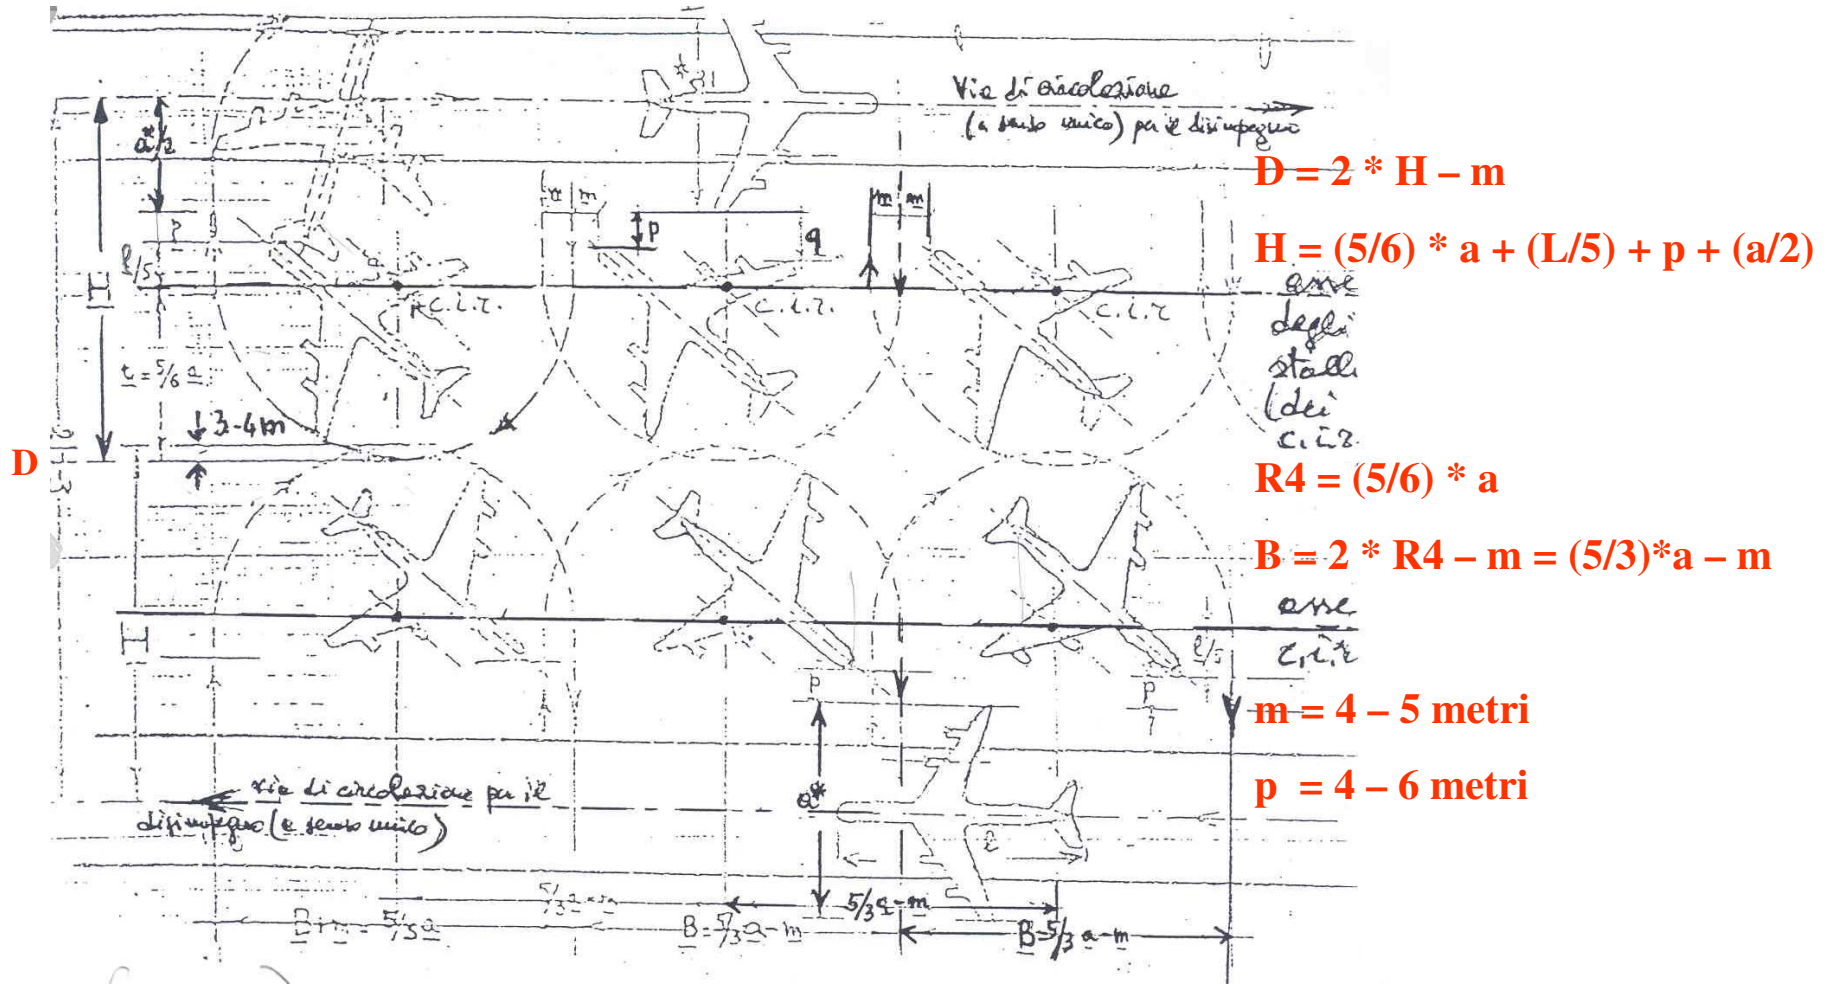 Vie di circolazione
(a senso unico) per il disimpegno
a*/2
D = 2 * H – m
m m
p
q
H = (5/6) * a + (L/5) + p + (a/2)
l/5
H
asse
degli
stalli
(dei
c.i.r.
c.i.r.
c.i.r.
c.i.r.
r = 5/6 a
3-4m
D
R4 = (5/6) * a
B = 2 * R4 – m = (5/3)*a – m
asse
c.i.r.
H
l/5
p
p
m = 4 – 5 metri
p = 4 – 6 metri
via di circolazione per il
disimpegno (a senso unico)
a*
l
5/3 a - m
5/3 a - m
B + m = 5/3 a
B = 5/3 a - m
B = 5/3 a - m